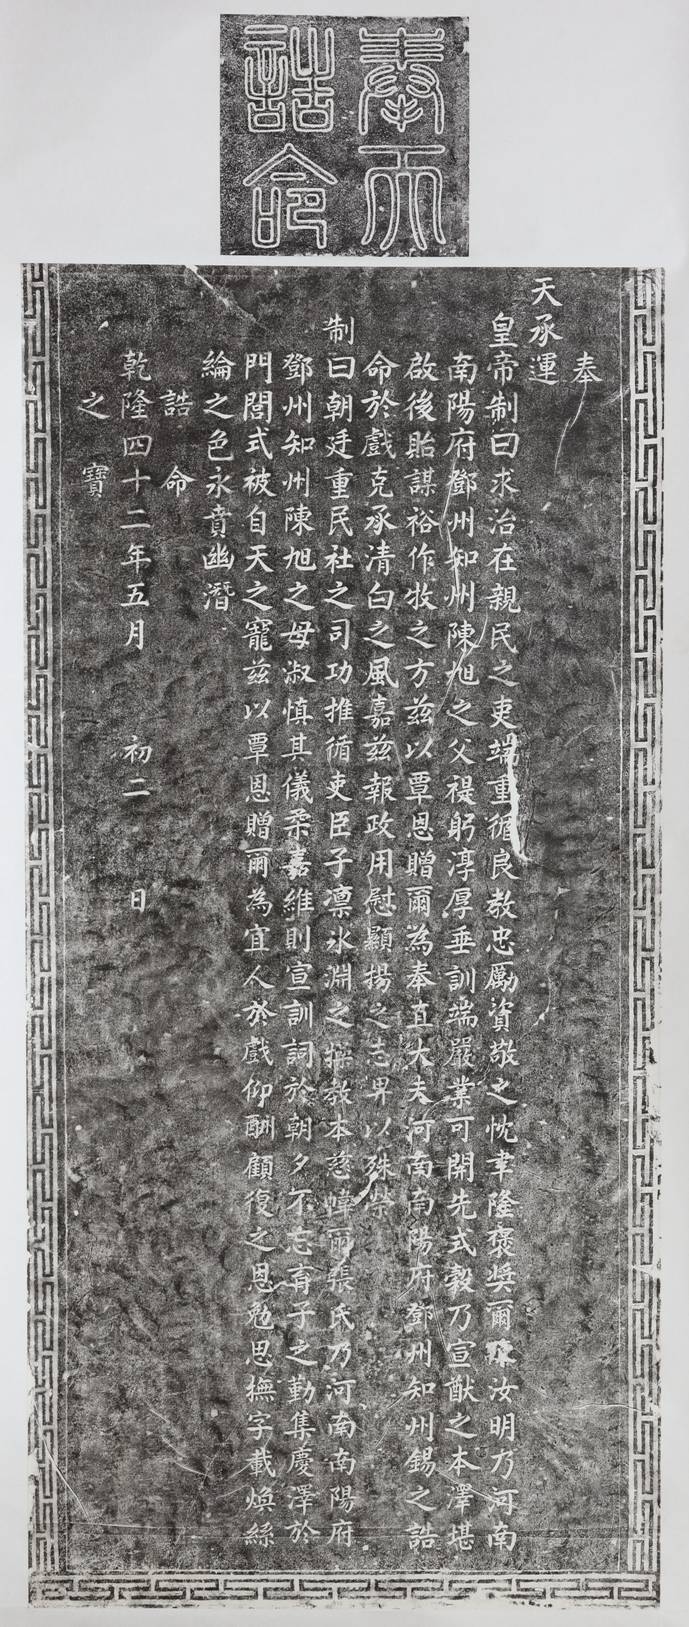 奉天
誥命
奉
天承運
皇帝制曰求治在親民之吏端重循良教忠勵資敬之忱聿隆褒獎爾陳汝明乃河南
南陽府鄧州知州陳旭之父禔躬淳厚垂訓端嚴業可開先式穀乃宣猷之本澤堪
啟後貽謀裕作牧之方茲以覃恩贈爾為奉直大夫河南南陽府鄧州知州錫之誥
命於戲克承清白之風嘉茲報政用慰顯揚之志畀以殊榮
制曰朝廷重民社之司功推循吏臣子凜冰淵之操教本慈幃爾張氏乃河南南陽府
鄧州知州陳旭之母淑慎其儀柔嘉維則宣訓詞於朝夕不忘育子之勤集慶澤於
門閭式被自天之寵茲以覃恩贈爾為宜人於戲仰酬顧復之恩勉思撫字載煥絲
綸之色永賁幽潛
誥命
乾隆四十二年五月初二日
之寶